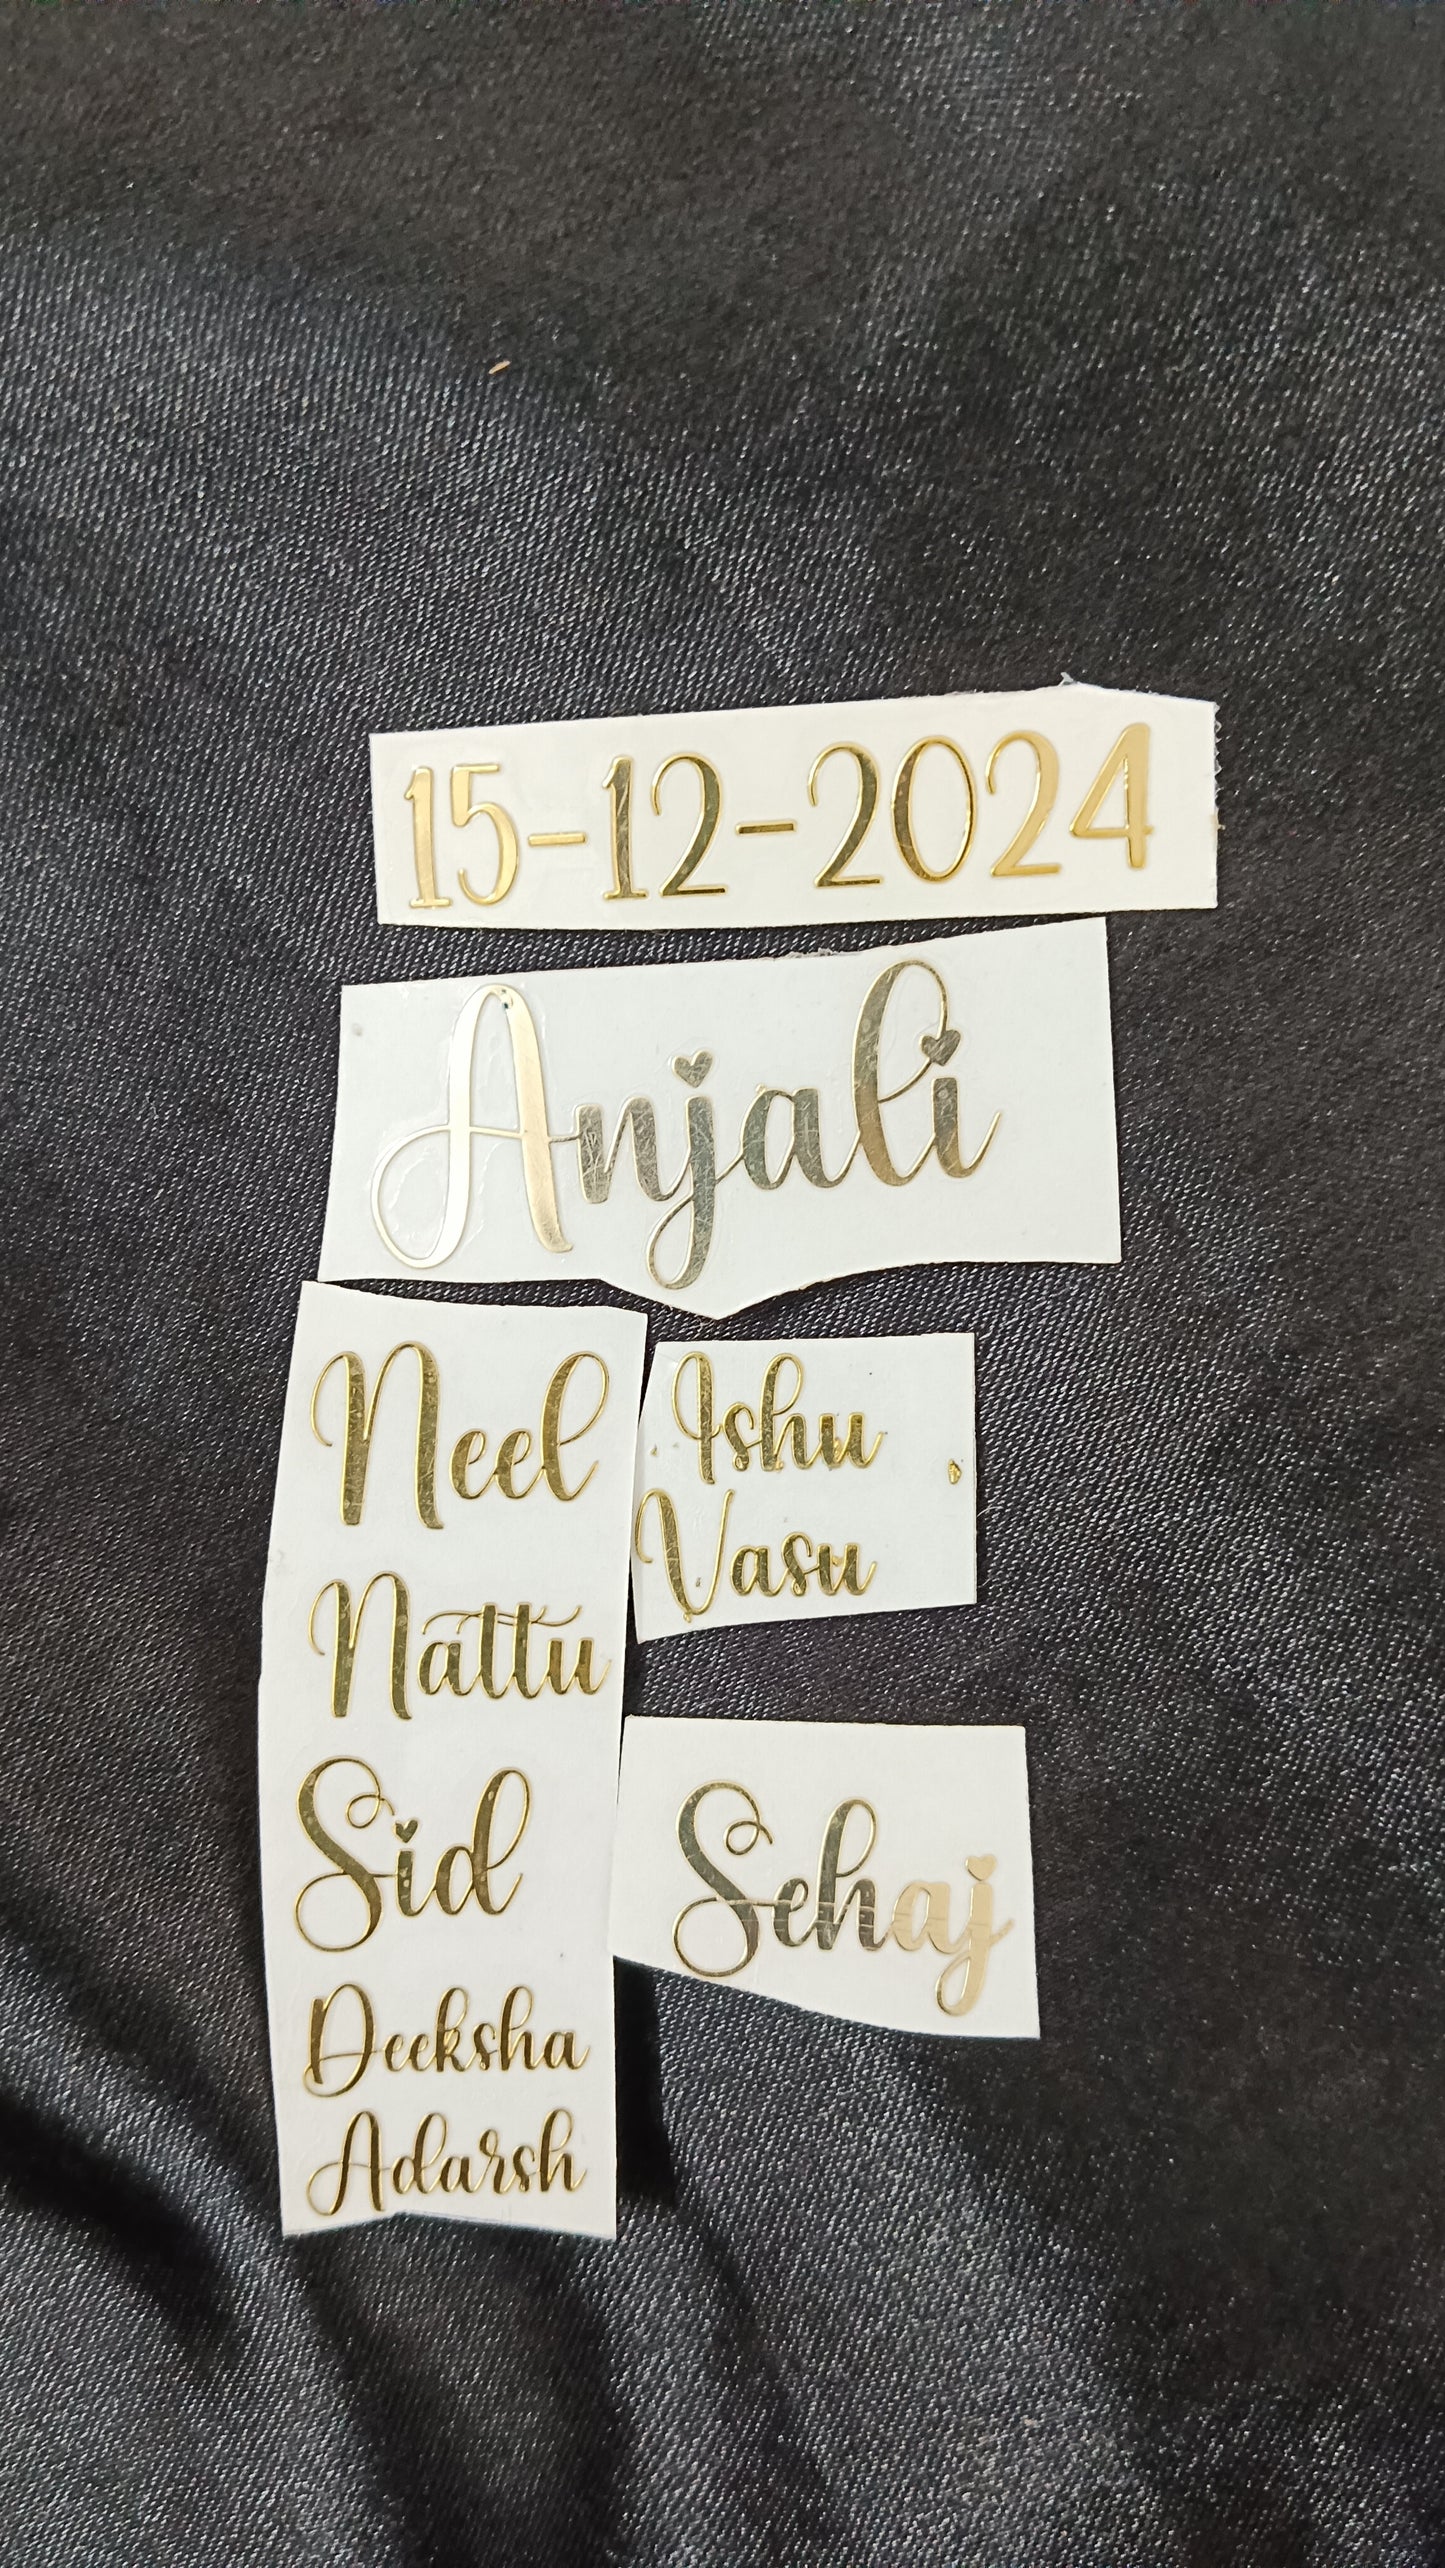 15-12-2024
Anjali
Neel
Nattu
Sid
Deeksha
Adarsh
Ishu
Vasu
Sehaj